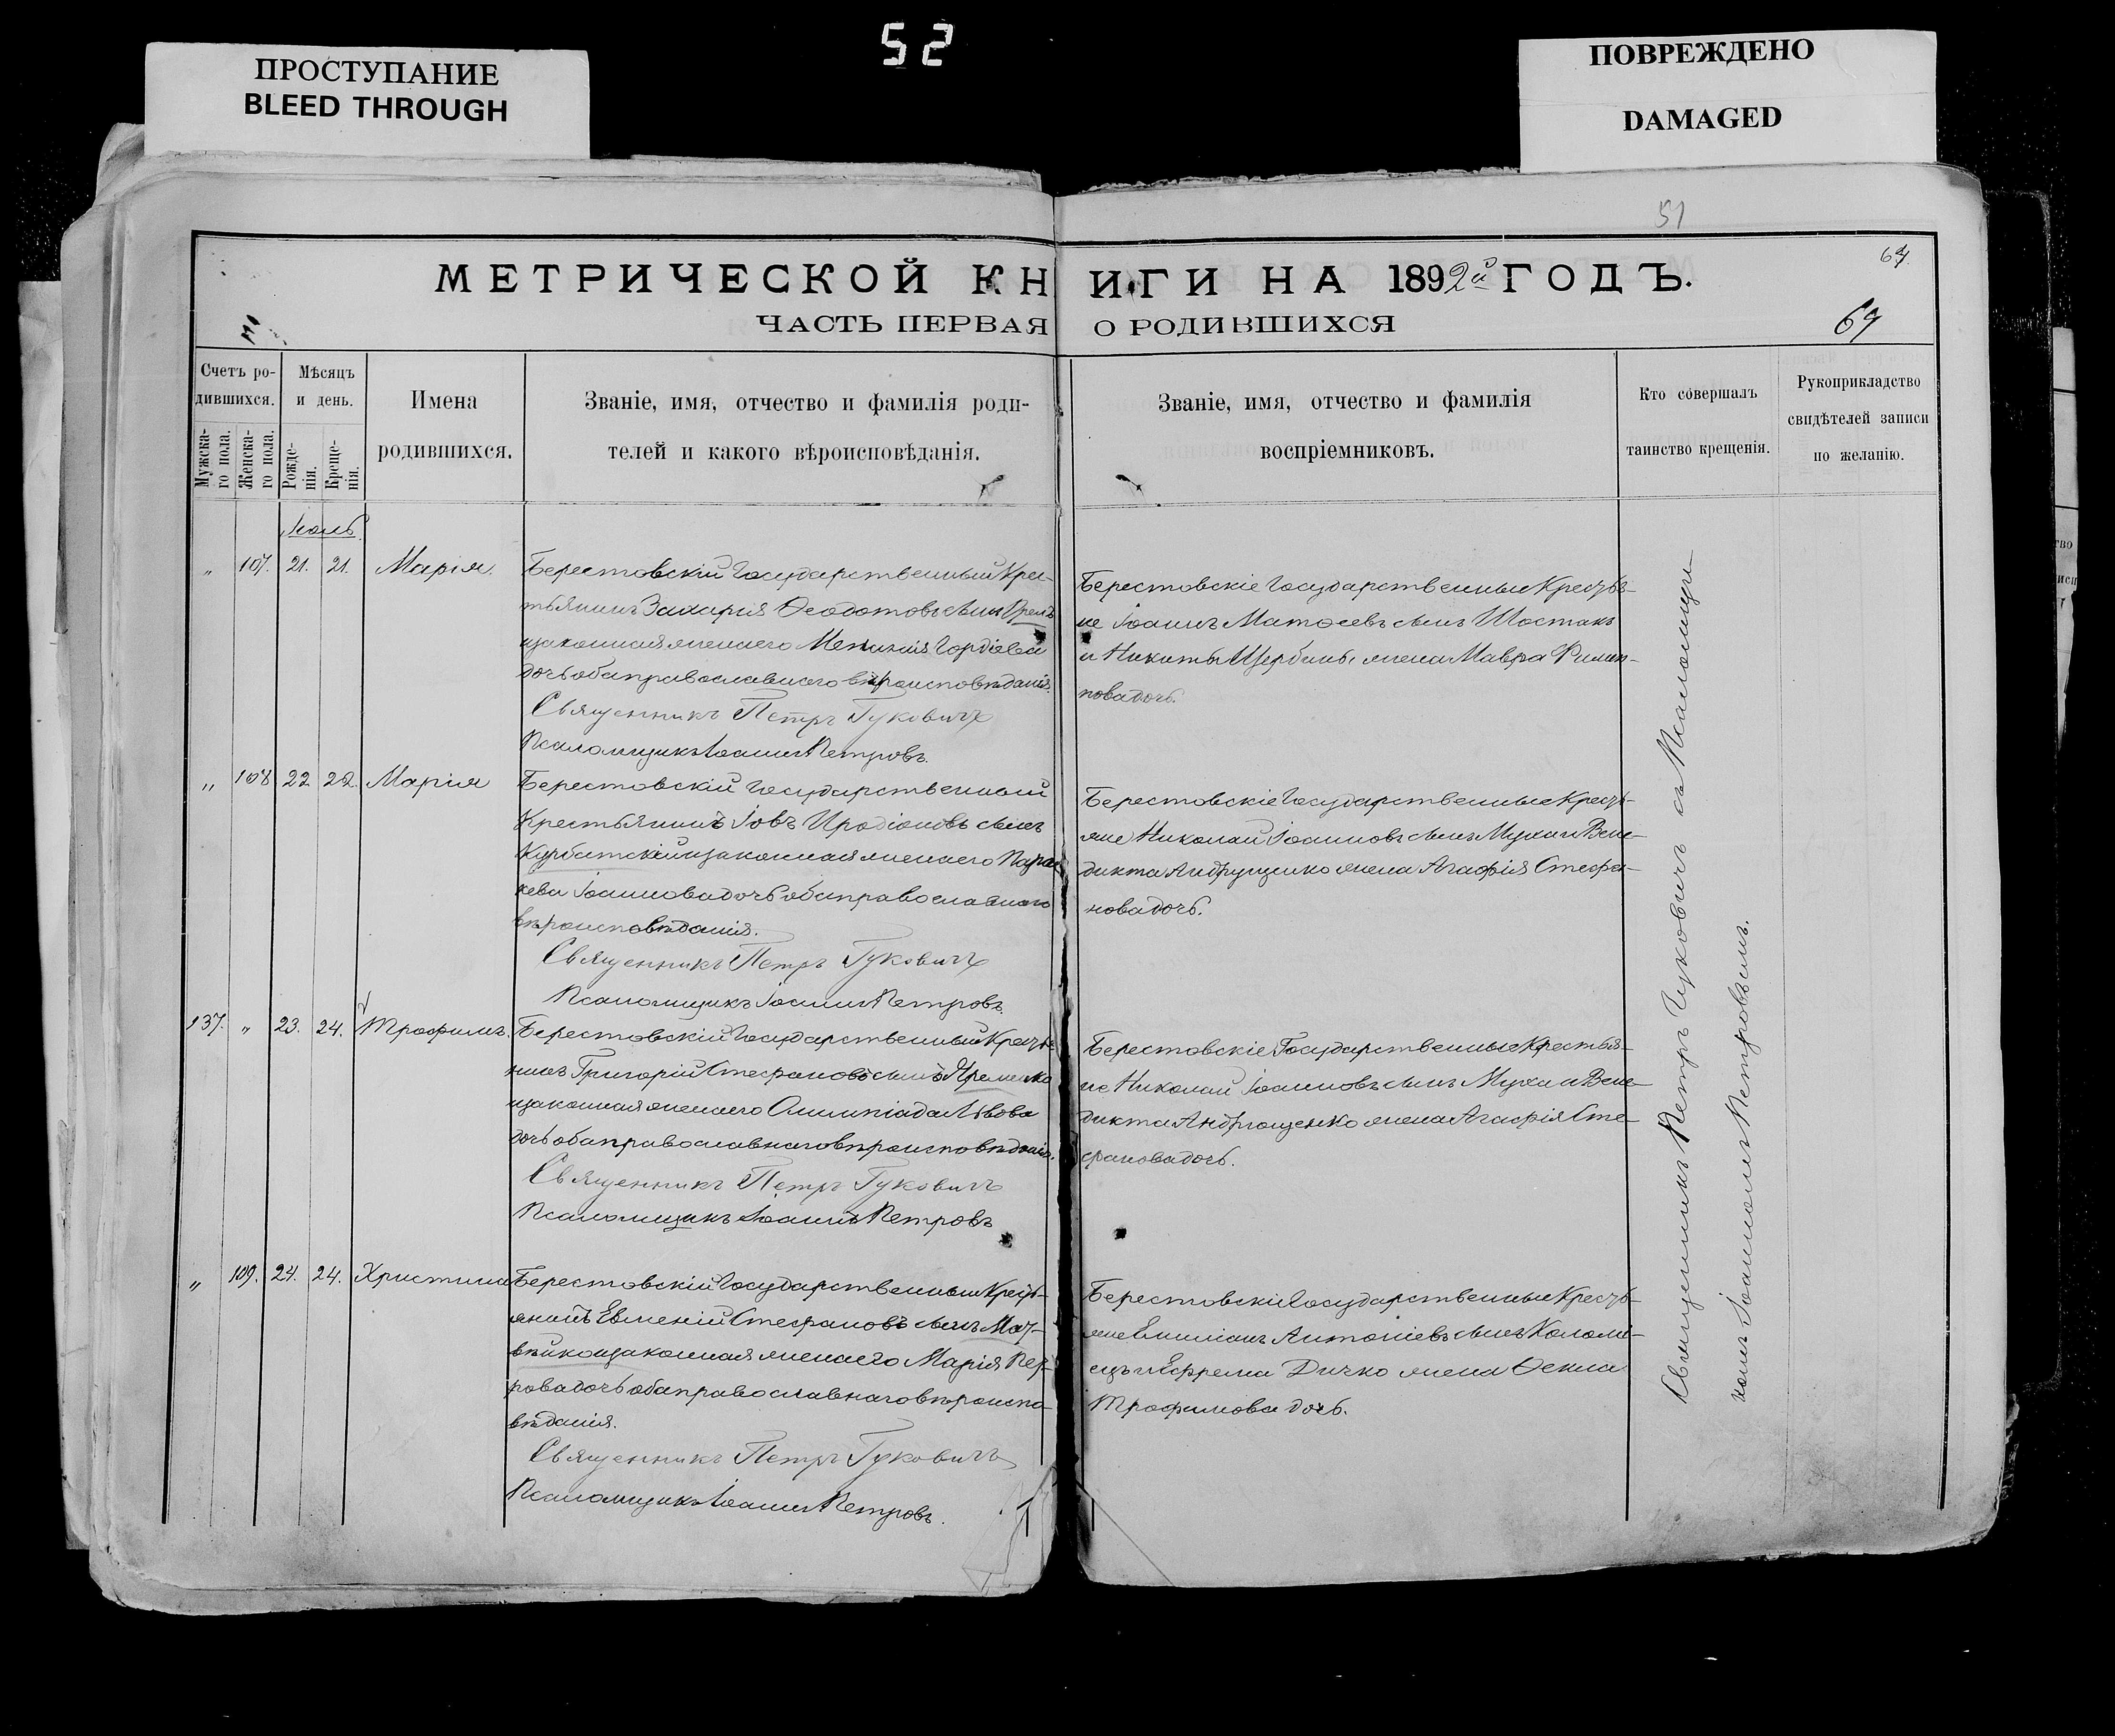 52
ПРОСТУПАНИЕ
BLEED THROUGH
ПОВРЕЖДЕНО
DAMAGED
51
МЕТРИЧЕСКОЙ КНИГИ НА 1892й ГОДЪ.
ЧАСТЬ ПЕРВАЯ О РОДИВШИХСЯ
69
Счетъ ро-
дившихся.
Мужска-
го пола.
Женска-
го пола.
Мѣсяцъ
и день.
Рожде-
нія.
Креще-
нія.
Имена
родившихся.
Званіе, имя, отчество и фамилія роди-
телей и какого вѣроисповѣданія.
Званіе, имя, отчество и фамилія
воспріемниковъ.
Кто совершалъ
таинство крещенія.
Рукоприкладство
свидѣтелей записи
по желанію.
„ 107. 21. 21. Марія.
Берестовскій Государственный Крес-
тьянинъ Захарія Ѳеодотовъ сынъ
изаконная жена его Гордіева
дочь оба православнаго вѣроисповѣданія.
Священникъ Петръ Гуковичъ
Псаломщикъ Іоаннъ Петровъ.
Берестовскіе Государственные Крестья-
не Іоаннъ Матѳеевъ сынъ Шостакъ
и Никиты Щербины жена Мавра Филип-
пова дочь.
„ 108 22 22. Марія
Берестовскій Государственный
Крестьянинъ Іовъ Иродіоновъ сынъ
изаконная жена его Парас-
кева Іоаннова дочь оба православнаго
вѣроисповѣданія.
Священникъ Петръ Гуковичъ
Псаломщикъ Іоаннъ Петровъ.
Берестовскіе Государственные Кресть-
яне Николай Іоанновъ сынъ Муха и Вене-
дикта Андрущенко жена Агафія Стефа-
нова дочь.
137. „ 23. 24. Трофимъ.
Берестовскій Государственный Крестья-
нинъ Григорій Стефановъ сынъ Яременко
изаконная жена его Олимпіада Львова
дочь оба православнаго вѣроисповѣданія.
Священникъ Петръ Гуковичъ
Псаломщикъ Іоаннъ Петровъ
Берестовскіе Государственные Крестья-
не Николай Іоанновъ сынъ Муха и Вене-
дикта Андрющенко жена Агафія Сте-
фанова дочь.
„ 109. 24. 24. Христина
Берестовскій Государственный Кресть-
янинъ Евменій Стефановъ сынъ Мат-
вѣйко изаконная жена его Марія Пет-
рова дочь оба православнаго вѣроиспо-
вѣданія.
Священникъ Петръ Гуковичъ
Псаломщикъ Іоаннъ Петровъ.
Берестовскіе Государственные Кресть-
яне Емиліанъ Антоніевъ сынъ Коломі-
ецъ и Ефрема Дичко жена Ѳекла
Трофимова дочь.
Священникъ Петръ Гуковичъ съ Псаломщи-
комъ Іоанномъ Петровымъ.